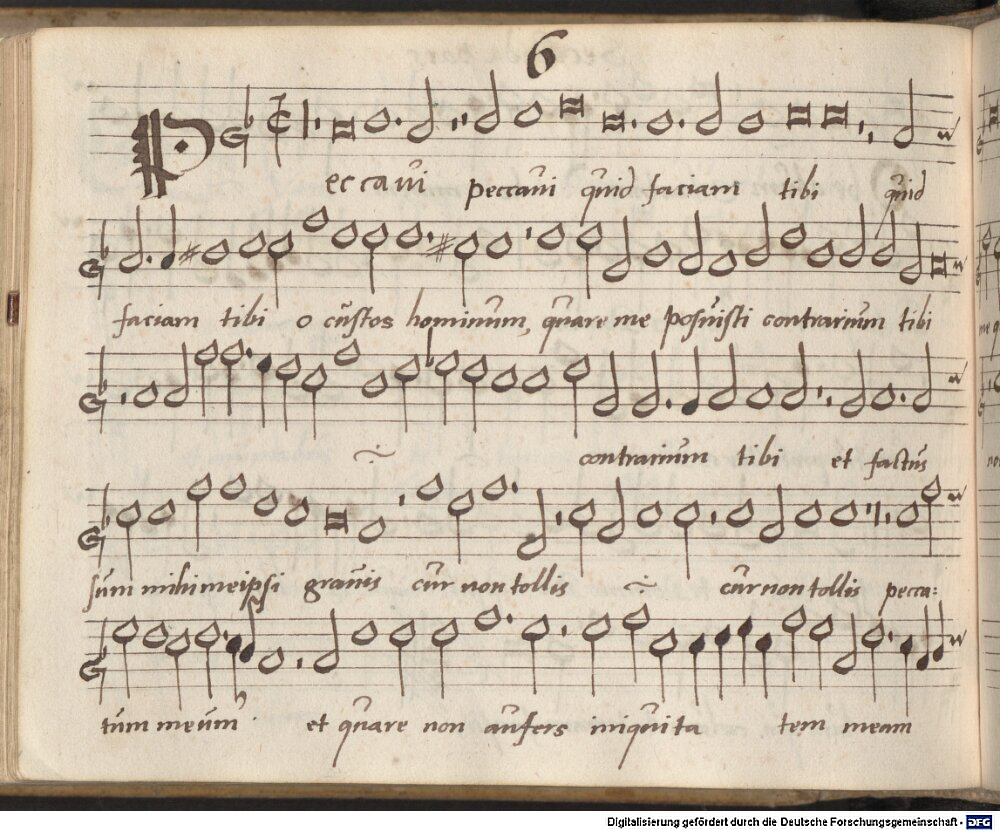 6
Peccavi peccavi quid faciam tibi quid
faciam tibi o custos hominum, quare me posuisti contrarium tibi
contrarium tibi et factus
sum mihi meipsi gravis cur non tollis cur non tollis pecca:
tum meum et quare non aufers iniquita tem meam
Digitalisierung gefördert durch die Deutsche Forschungsgemeinschaft - DFG